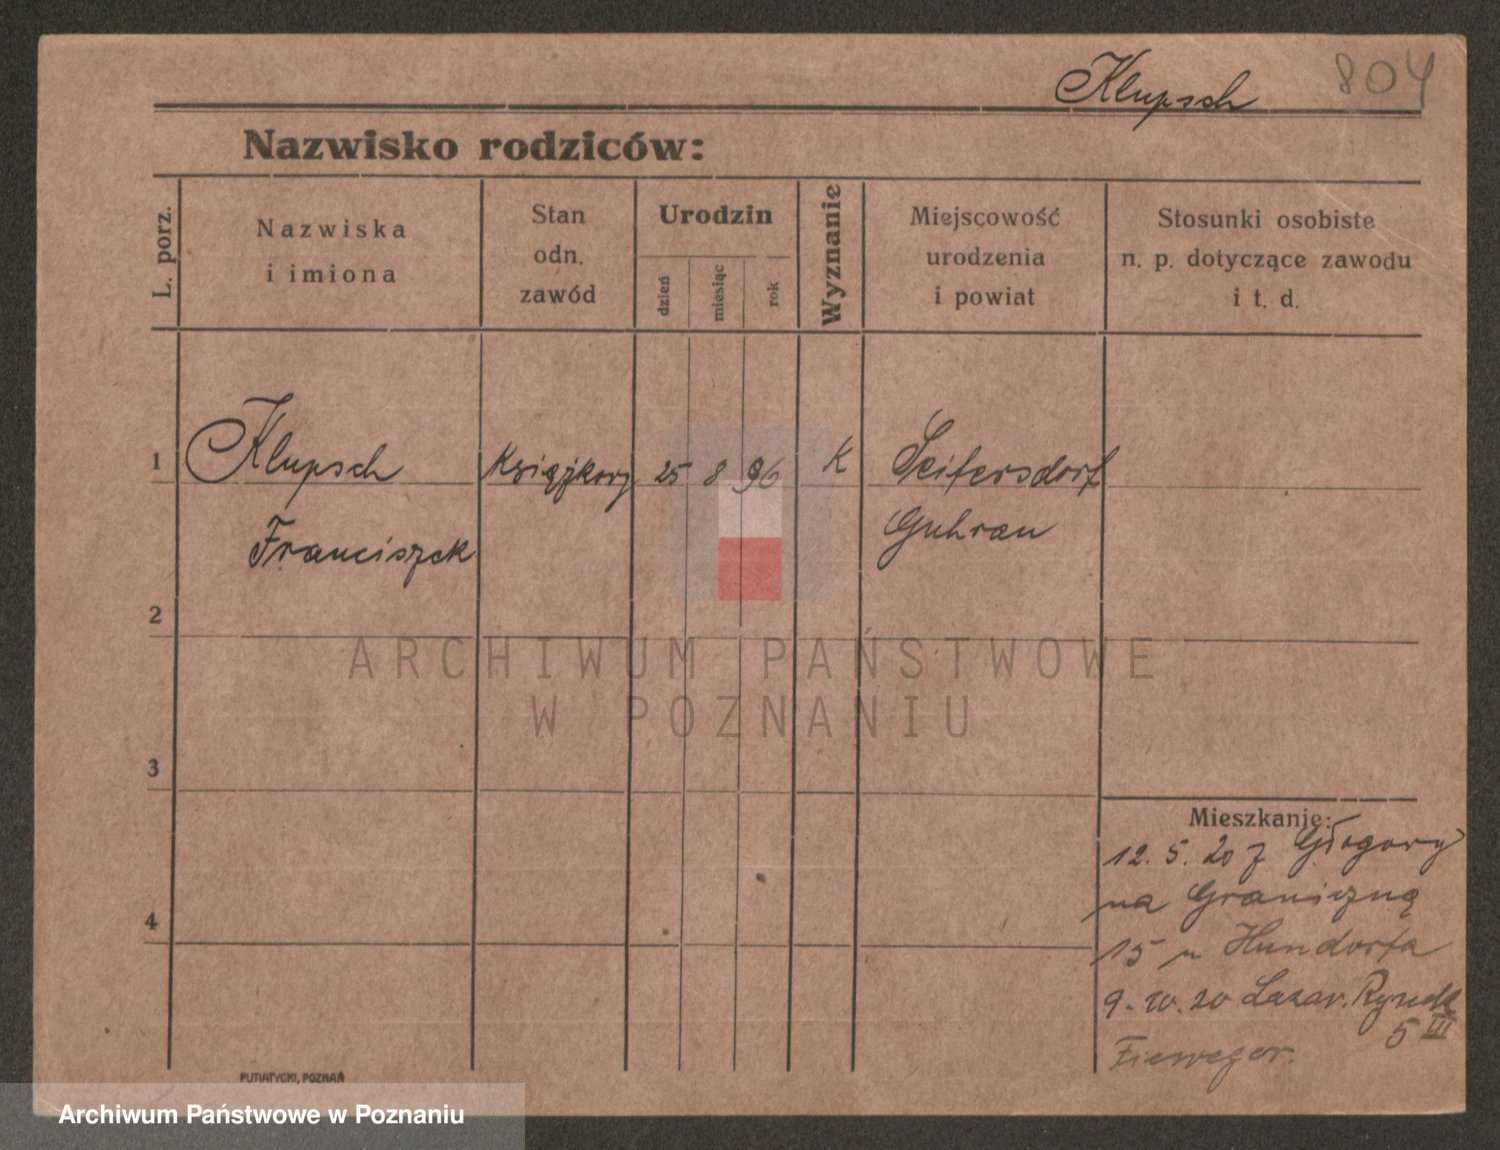 Klupsch 804
Nazwisko rodziców:
L. porz.
Nazwiska
i imiona
Stan
odn.
zawód
Urodzin
dzień
miesiąc
rok
Wyznanie
Miejscowość
urodzenia
i powiat
Stosunki osobiste
n. p. dotyczące zawodu
i t. d.
1 Klupsch 25 8 96 K Seifersdorf
Franciszek Guhrau
2
ARCHIWUM PAŃSTWOWE
W POZNANIU
3
Mieszkanie:
12. 5. 20 z Głogowy
4
na Graniczną
15 u Hundorfa
9. 10. 20 Lazar. Rynek
5 III
Fieweger.
PUTIATYCKI, POZNAŃ
Archiwum Państwowe w Poznaniu